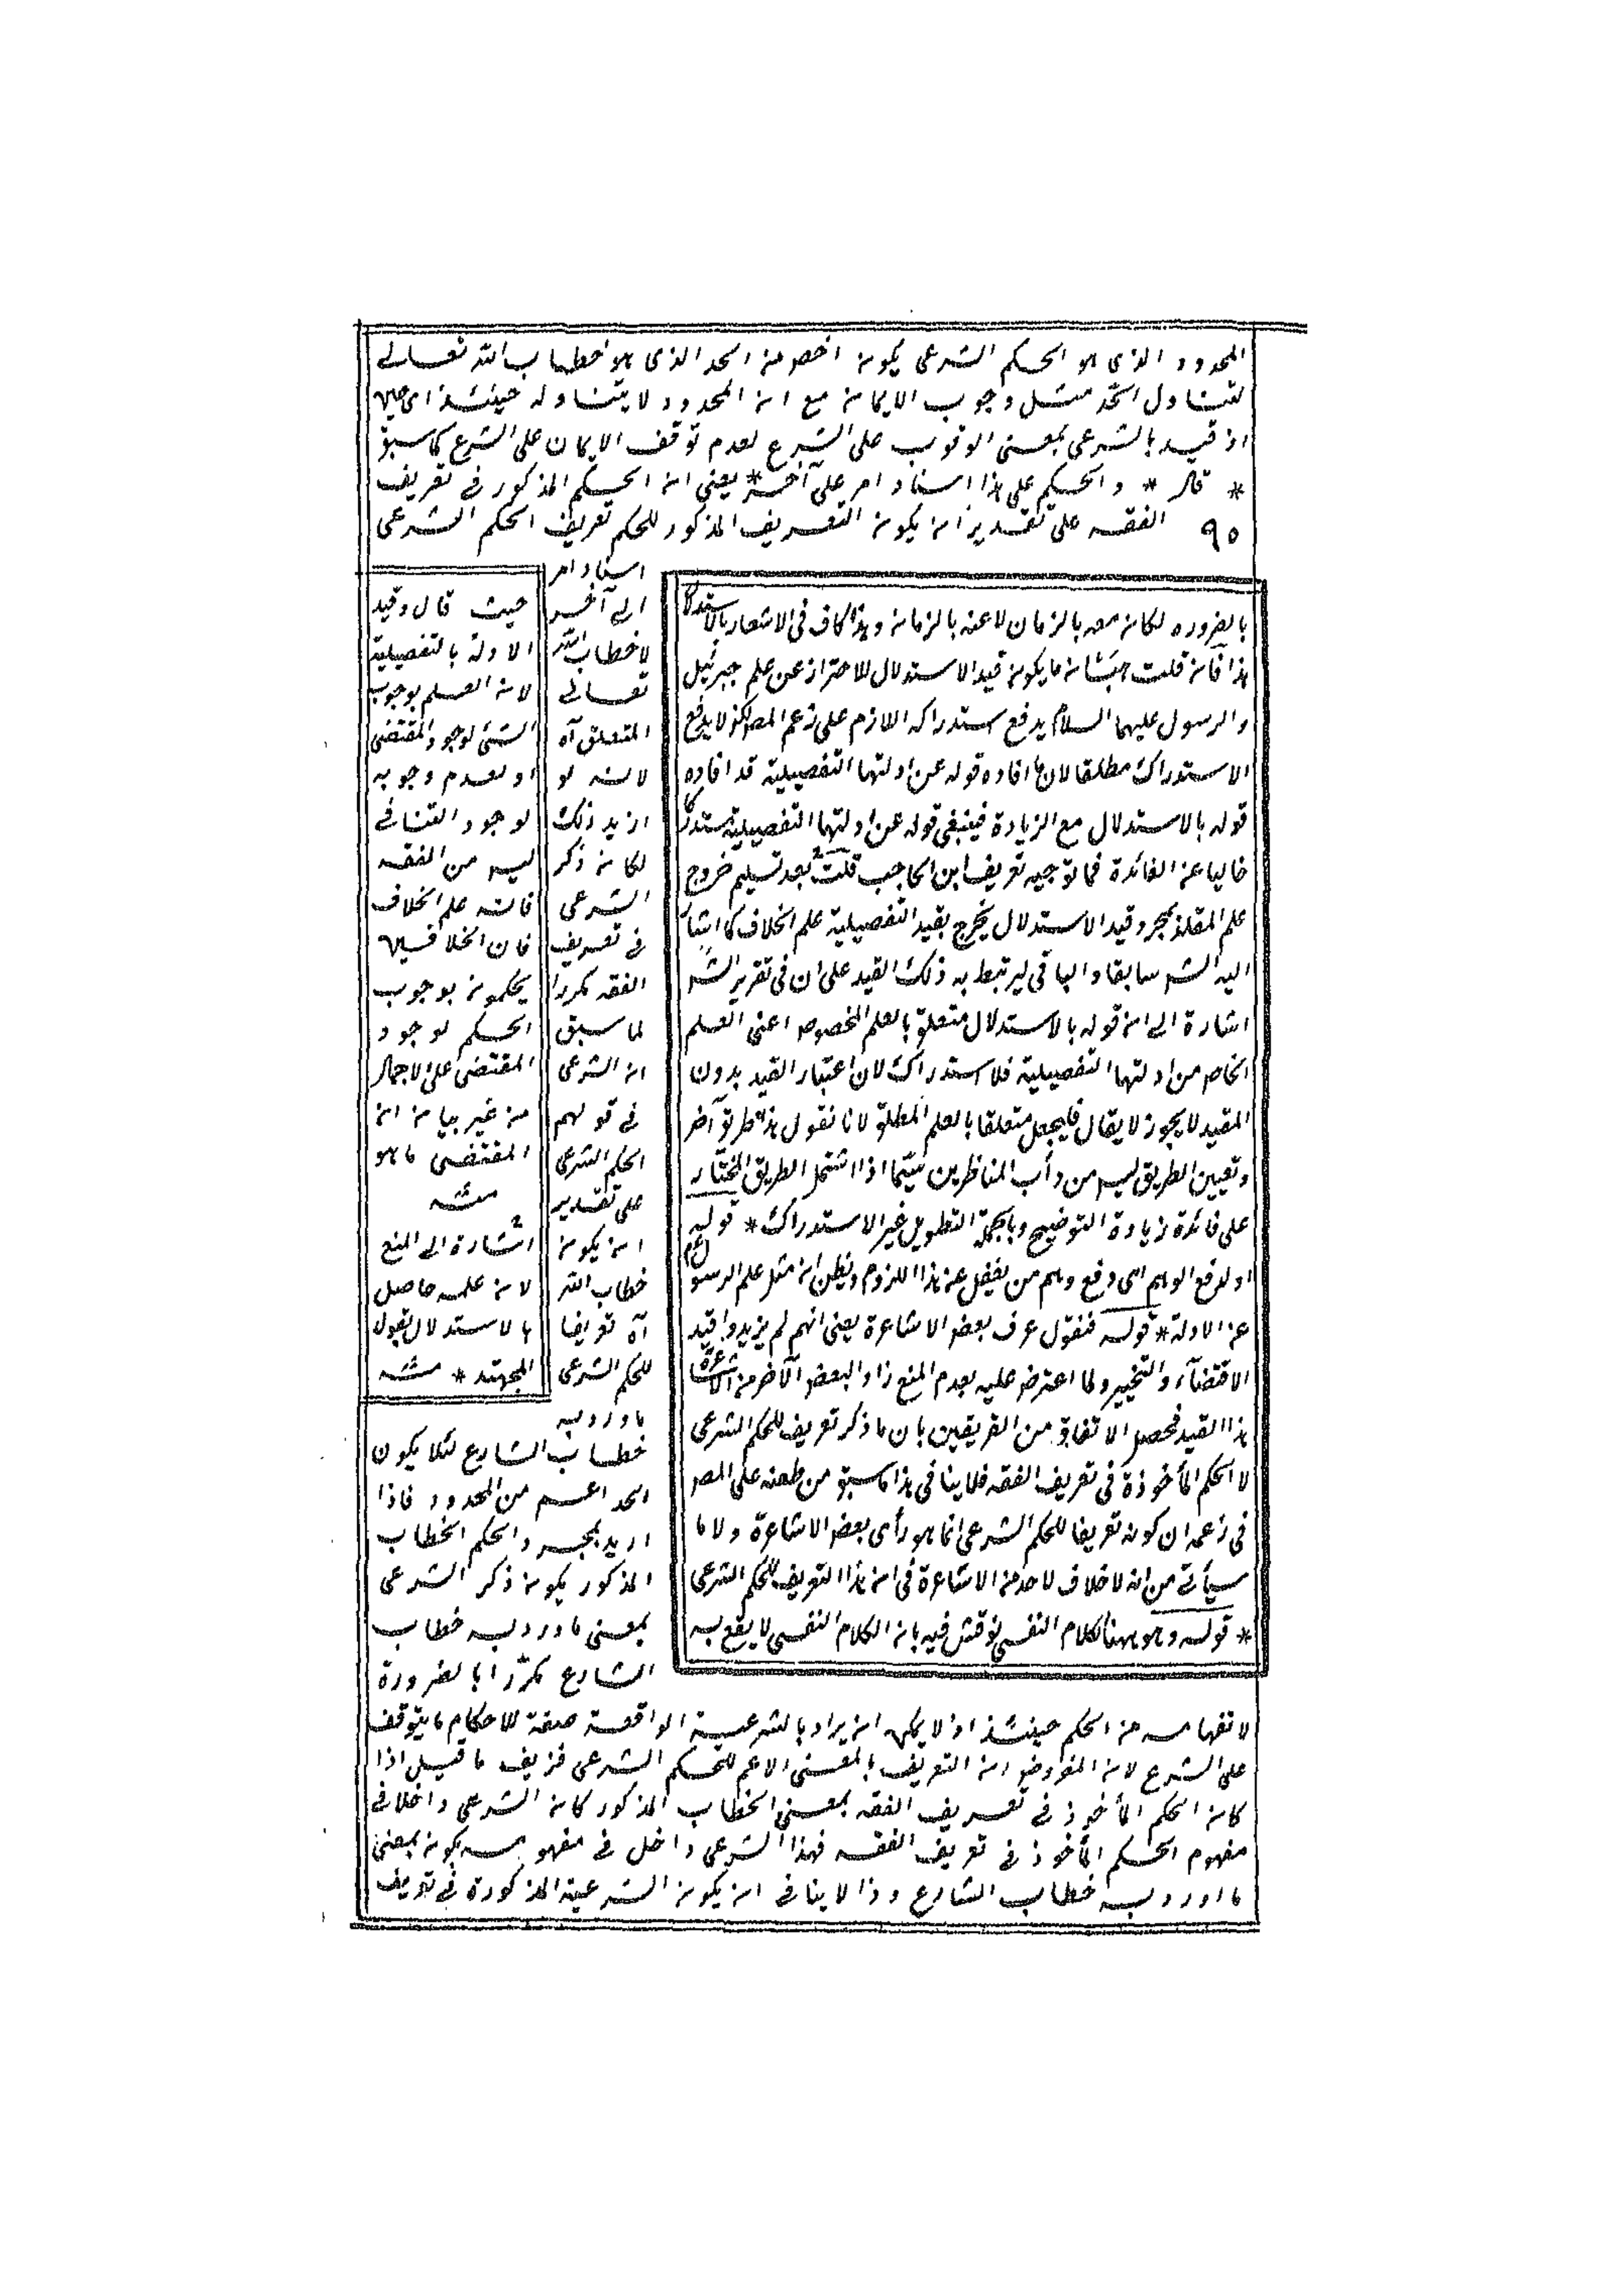 المحدود الذى هو الحكم الشرعى يكون اخص من الحد الذى هو خطاب الله تعالى
لتناول الحد مثل وجوب الايمان مع ان المحدود لا يتناوله حينئذ اى حين
اذ قيد بالشرعى بمعنى الوقوب على الشرع لعدم توقف الايمان على الشرع كما سبق
* قال * والحكم على هذا اسناد امر على آخر * يعنى ان الحكم المذكور فى تعريف
٩٥ الفقه على تقدير ان يكون التعريف المذكور للحكم تعريف الحكم الشرعى
اسناد امر
الى آخر
لا خطاب الله
تعالى
المتعلق آه
لانه لو
اريد ذلك
لكان ذكر
الشرعى
فى تعريف
الفقه مكررا
لما سبق
ان الشرعى
فى قولهم
الحكم الشرعى
على تقدير
ان يكون
خطاب الله
آه تعريفا
للحكم الشرعى
ما ورد به
خطاب الشارع لئلا يكون
الحد اعم من المحدود فاذا
اريد بمجرد الحكم الخطاب
المذكور يكون ذكر الشرعى
بمعنى ما ورد به خطاب
الشارع مكررا بالضرورة
لانفهامه من الحكم حينئذ اذ لا يمكن ان يراد بالشرعية الواقعة صفة للاحكام ما يتوقف
على الشرع لان المفروض ان التعريف بالمعنى الاعم للحكم الشرعى فزيف ما قيل اذا
كان الحكم المأخوذ فى تعريف الفقه بمعنى الخطاب المذكور كان الشرعى داخلا فى
مفهوم الحكم المأخوذ فى تعريف الفقه فهذا الشرعى داخل فى مفهومه يكون بمعنى
ما ورد به خطاب الشارع وذا لا ينافى ان يكون الشرعية المذكورة فى تعريف
بالضرورة لكان معه بالزمان لا عنه بالزمان وهذا كاف فى الاشعار بالاستدراك
هذا فان قلت حيثان ما يكون قيد الاستدلال للاحتراز عن علم جبرئيل
والرسول عليهما السلام يدفع استدراكه اللازم على زعم المص لكن لا يدفع
الاستدراك مطلقا لان ما افاده قوله عن ادلتها التفصيلية قد افاده
قوله بالاستدلال مع الزيادة فينبغى قوله عن ادلتها التفصيلية مستدركا
خاليا عن الفائدة فما توجيه تعريف ابن الحاجب قلت بعد تسليم خروج
علم المقلد بمجرد قيد الاستدلال يخرج بقيد التفصيلية علم الخلاف كما اشار
اليه الش سابقا والباقى ليرتبط به ذلك القيد على ان فى تقرير الش
اشارة الى ان قوله بالاستدلال متعلق بالعلم المخصوص اعنى العلم
الخاص من ادلتها التفصيلية فلا استدراك لان اعتبار القيد بدون
المقيد لا يجوز لا يقال فليجعل متعلقا بالعلم المطلق لانا نقول هذا طريق آخر
وتعيين الطريق ليس من دأب المناظرين سيما اذا اشتمل الطريق المختار
على فائدة زيادة التوضيح وبالجملة التطويل غير الاستدراك * قوله
او لدفع الوهم اى دفع وهم من يغفل عن هذا اللزوم ويظن ان مثل علم الرسول عم
عن الادلة * قوله فنقول عرف بعض الاشاعرة يعنى انهم لم يزيدوا قيد
الاقتضاء والتخيير ولما اعترض عليه بعدم المنع زاد البعض الآخر من الاشاعرة
هذا القيد فحصل الاتفاق من الفريقين بان ما ذكر تعريف للحكم الشرعى
لا الحكم المأخوذة فى تعريف الفقه فلا ينافى هذا ما سبق من طعنه على المص
فى زعمه ان كونه تعريفا للحكم الشرعى انما هو رأى بعض الاشاعرة ولا ما
سيأتى من انه لا خلاف لاحد من الاشاعرة فى ان هذا التعريف للحكم الشرعى
* قوله وهو ههنا الكلام النفسى نوقش فيه بان الكلام النفسى لا يقع به
حيث قال وقيد
الادلة بالتفصيلية
لان العلم بوجوب
الشئ لوجود المقتضى
او لعدم وجوبه
لوجود التنافى
ليس من الفقه
فانه علم الخلاف
فان الخلافيين
يحكمون بوجوب
الحكم لوجود
المقتضى على الاجمال
من غير بيان ان
المقتضى ما هو
منه
٢ اشارة الى المنع
لان علمه حاصل
بالاستدلال بقول
المجتهد * منه